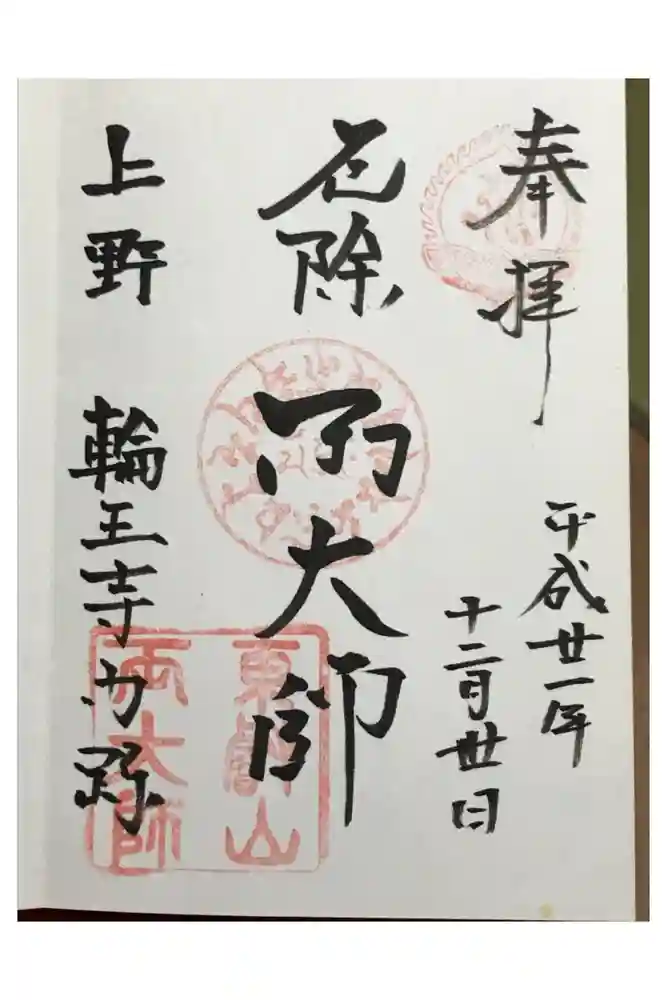 奉拝
平成廿一年
十二月丗日
厄除 両大師
上野 輪王寺門跡
東叡山
両大師